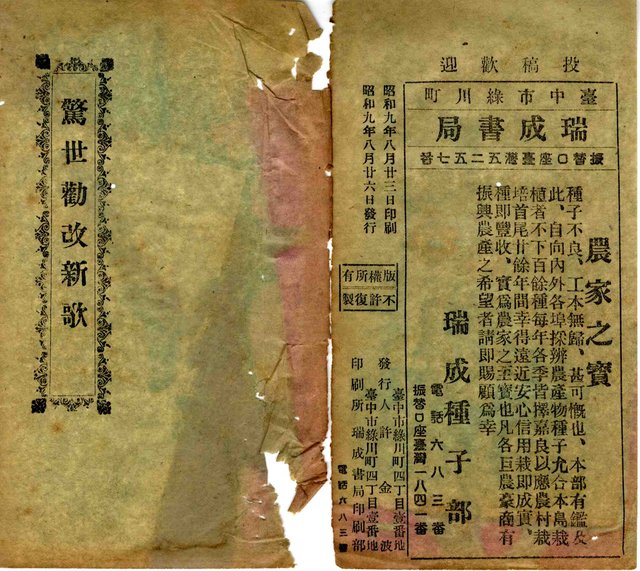 投稿歡迎
臺中市綠川町
瑞成書局
振替口座臺灣五二五七番
農家之寶
種子不良、工本無歸、甚可慨也、本部有鑑及
此、自向內外各埠採辨農產物種子允合本島栽
種者不下百餘種每年各季皆擇嘉良以應農村栽
培首尾廿餘年間幸得遠近安心信用栽即成實、
種即豐收、實爲農家之至寶也凡各巨農豪商有
振興農產之希望者請即賜顧爲幸
瑞成種子部
電話六八三番
振替口座臺灣一八四一番
昭和九年八月廿三日印刷
昭和九年八月廿六日發行
版權所有
不許復製
臺中市綠川町四丁目壹番地
發行人許金波
臺中市綠川町四丁目壹番地
印刷所瑞成書局印刷部
電話六八三番
驚世勸改新歌